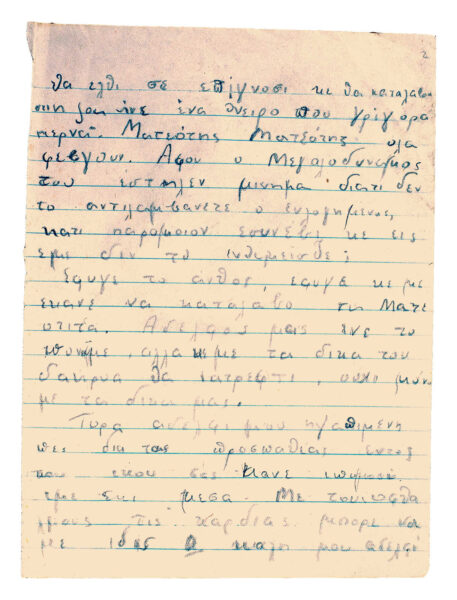 2
θα ελθι σε επίγνοσι κε θα καταλαβι
οτι η ζοι ινε ένα όνειρο που γρίγορα
περνά. Ματεότης Ματεότης ολα
φευγουν. Αφου ο Μεγαλοδυναμος
του έστηλεν μινημα διατι δεν
το αντιλαμβανετε ο ευλογημενος,
κατι παρομοιον εσυνεβι κε εις
εμε δεν το ινθιμεισθε;
Εφυγε το ανθος, εφυγε κε με
εκανε να καταλαβο τιν Ματε
οτιτα. Αδελφος μας ινε το
πονάμε, αλλα κε με τα δικα του
δακρυα θα ιατρεφτι, ουχι μόνο
με τα δικα μας.
Τορα αδελφι μου ηγαπιμενη
πες δια τας προσπαθιας
που εκου σας κανε
εμε εκι μεσα. Με τους οφθα
λμους τις καρδιας μπορο να
με ιδις καλη μου αδελφι